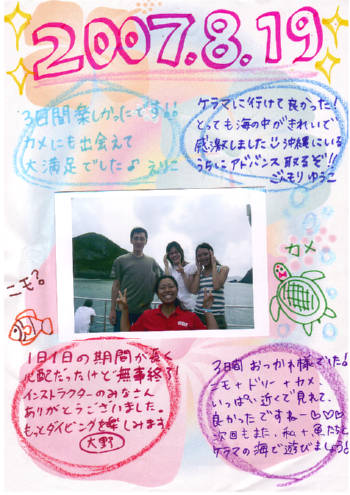 2007.8.19
3日間楽しかったです!!
カメにも出会えて
大満足でした♪ えりこ
ケラマに行けて良かった!
とっても海の中がきれいで
感激しました 沖縄にいる
うちに アドバンス取るぞ!!
こモリ ゆうこ
カメ
ニモ?
1日1日の期間が長く
心配だったけど無事終了
インストラクターのみなさん
ありがとうございました。
もっとダイビングを楽しみます
大野
3日間 おつかれ様でした!
ニモ+ドリー+カメ、
いっぱい近くで見れて、
良かったですねー♡♡♡
次回もまた、私+魚たちと
ケラマの海で遊びましょう